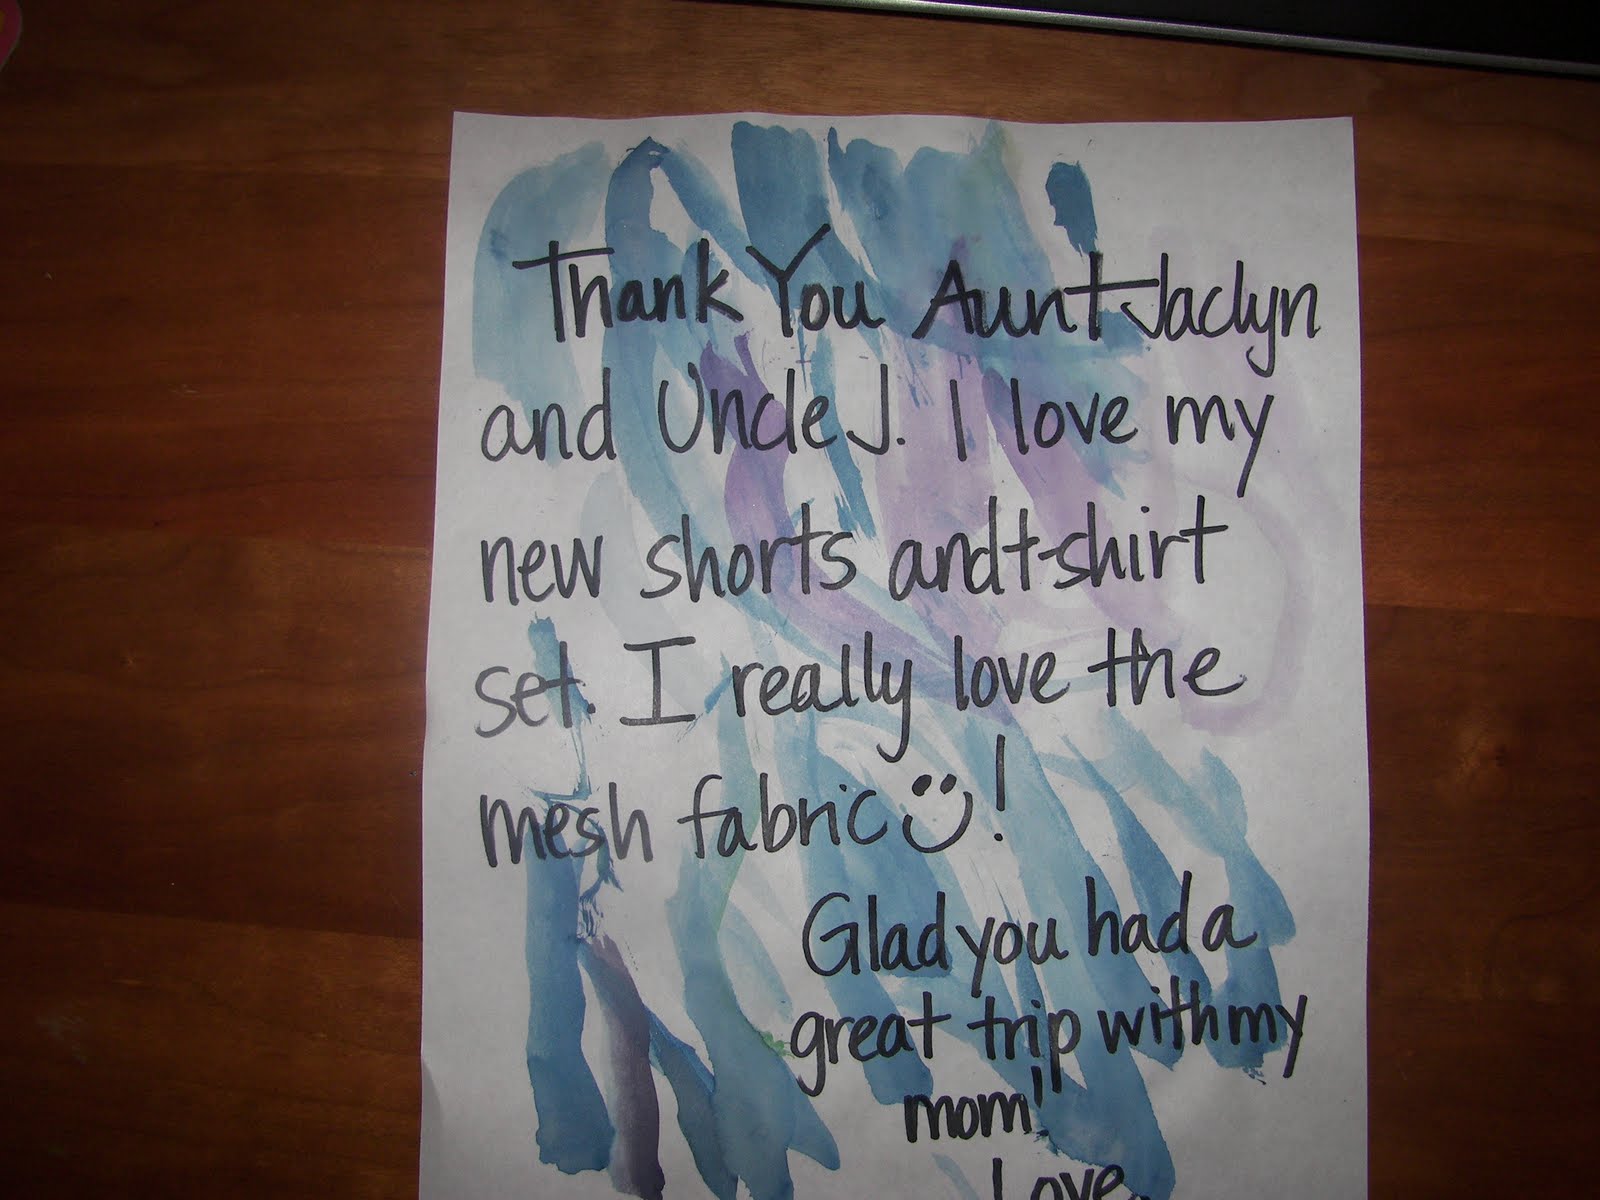 Thank You Aunt Jaclyn
and Uncle J. I love my
new shorts and t-shirt
set. I really love the
mesh fabric !
Glad you had a
great trip with my
mom!
Love,